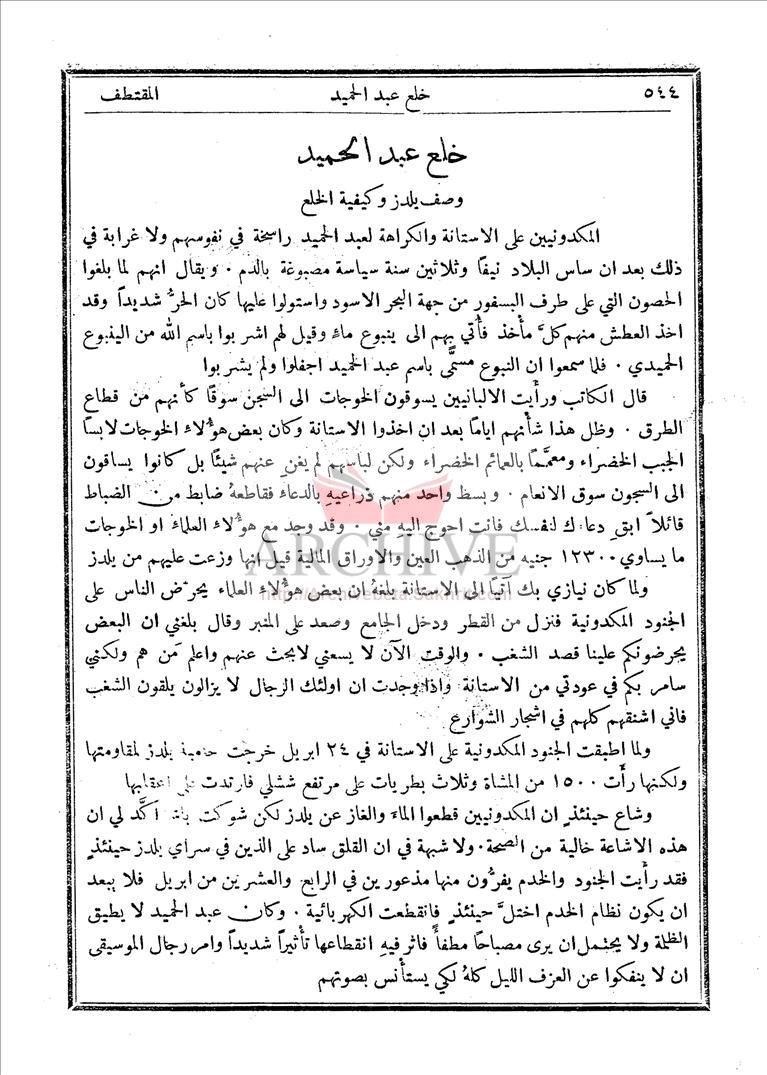 ٥٤٤ خلع عبد الحميد المقتطف
خلع عبد الحميد
وصف يلدز وكيفية الخلع
المكدونيين على الاستانة والكراهة لعبد الحميد راسخة في نفوسهم ولا غرابة في
ذلك بعد ان ساس البلاد نيفًا وثلاثين سنة سياسة مصبوغة بالدم . ويقال انهم لما بلغوا
الحصون التي على طرف البسفور من جهة البحر الاسود واستولوا عليها كان الحرُّ شديداً وقد
اخذ العطش منهم كلَّ مأخذ فأُتي بهم الى ينبوع ماءٍ وقيل لهم اشربوا باسم الله من الينبوع
الحميدي . فلما سمعوا ان النبوع مسمًّى باسم عبد الحميد اجفلوا ولم يشربوا
قال الكاتب ورأيت الالبانيين يسوقون الخوجات الى السجن سوقًا كأنهم من قطاع
الطرق . وظل هذا شأنهم ايامًا بعد ان اخذوا الاستانة وكان بعض هؤلاء الخوجات لابسًا
الجبب الخضراء ومعممًا بالعمائم الخضراء ولكن لباسهم لم يغنِ عنهم شيئًا بل كانوا يساقون
الى السجون سوق الانعام . وبسط واحد منهم ذراعيهِ بالدعاء فقاطعهُ ضابط من الضباط
قائلاً ابقِ دعاءك لنفسك فانت احوج اليه مني . وقد وجد مع هؤلاء العلماء او الخوجات
ما يساوي ١٢٣٠٠ جنيه من الذهب العين والاوراق المالية قيل انها وزعت عليهم من يلدز
ARCHIVE
ولما كان نيازي بك آتيًا الى الاستانة بلغهُ ان بعض هؤلاء العلماء يحرّض الناس على
الجنود المكدونية فنزل من القطر ودخل الجامع وصعد على المنبر وقال بلغني ان البعض
يحرضونكم علينا قصد الشغب . والوقت الآن لا يسعني لابحث عنهم واعلم من هم ولكنني
سامر بكم في عودتي من الاستانة واذا وجدت ان اولئك الرجال لا يزالون يلقون الشغب
فاني اشنقهم كلهم في اشجار الشوارع
ولما اطبقت الجنود المكدونية على الاستانة في ٢٤ ابريل خرجت حامية يلدز لمقاومتها
ولكنها رأت ١٥٠٠ من المشاة وثلاث بطريات على مرتفع ششلي فارتدت على اعقابها
وشاع حينئذٍ ان المكدونيين قطعوا الماء والغاز عن يلدز لكن شوكت باشا اكَّد لي ان
هذه الاشاعة خالية من الصحة. ولا شبهة في ان القلق ساد على الذين في سراي يلدز حينئذٍ
فقد رأيت الجنود والخدم يفرُّون منها مذعورين في الرابع والعشرين من ابريل فلا يبعد
ان يكون نظام الخدم اختلَّ حينئذٍ فانقطعت الكهربائية . وكان عبد الحميد لا يطيق
الظلمة ولا يحتمل ان يرى مصباحًا مطفأً فاثر فيهِ انقطاعها تأثيراً شديداً وامر رجال الموسيقى
ان لا ينفكوا عن العزف الليل كلهُ لكي يستأنس بصوتهم